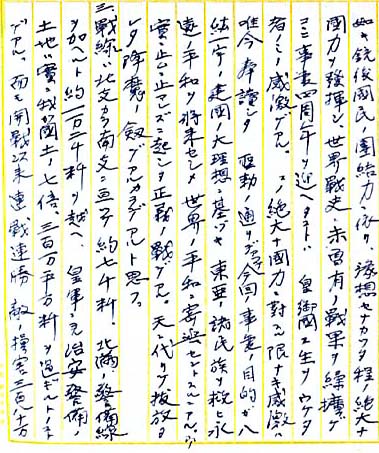 如キ銃後國民ノ團結力ニ依リ豫想セナカツタ程絶大ナ
國力ヲ發揮シ、世界戰史ニ未曽有ノ戰果ヲ繰擴ゲ
コニ事変四周年ヲ迎ヘタコトハ 皇御國ニ生ヲウケタ
者ノミノ感激デアル。コノ絶大ナ國力ニ對スル限ナキ感激ハ
唯今奉讀シタ 通リ 今回ノ事変ノ目的ガ八
紘一宇ノ建國ノ大理想ニ基ヅキ 東亜ノ諸民族ヲ救ヒ永
遠ノ平和ヲ將来セシメ 世界ノ平和ニ寄與セントスルニアル。
實ニ止ムニ止マレズニ起シタ正義ノ戰デアル。天ニ代リテ抜放ツ
タ降魔ノ劔デアルカラデアルト思フ。
三、戰線ハ北支ヨリ南支ニ亘ル約七千粁、北満ノ警備線
ヲ加ヘルト約一万二千粁ヲ越ヘ 皇軍ニヨル治安警備ノ
土地ハ實ニ我ガ國土ノ七倍 三百万平方粁ヲ過ギルトノコト
デアル。而モ開戰以来連戰連勝 敵ノ損害ハ三百八十万